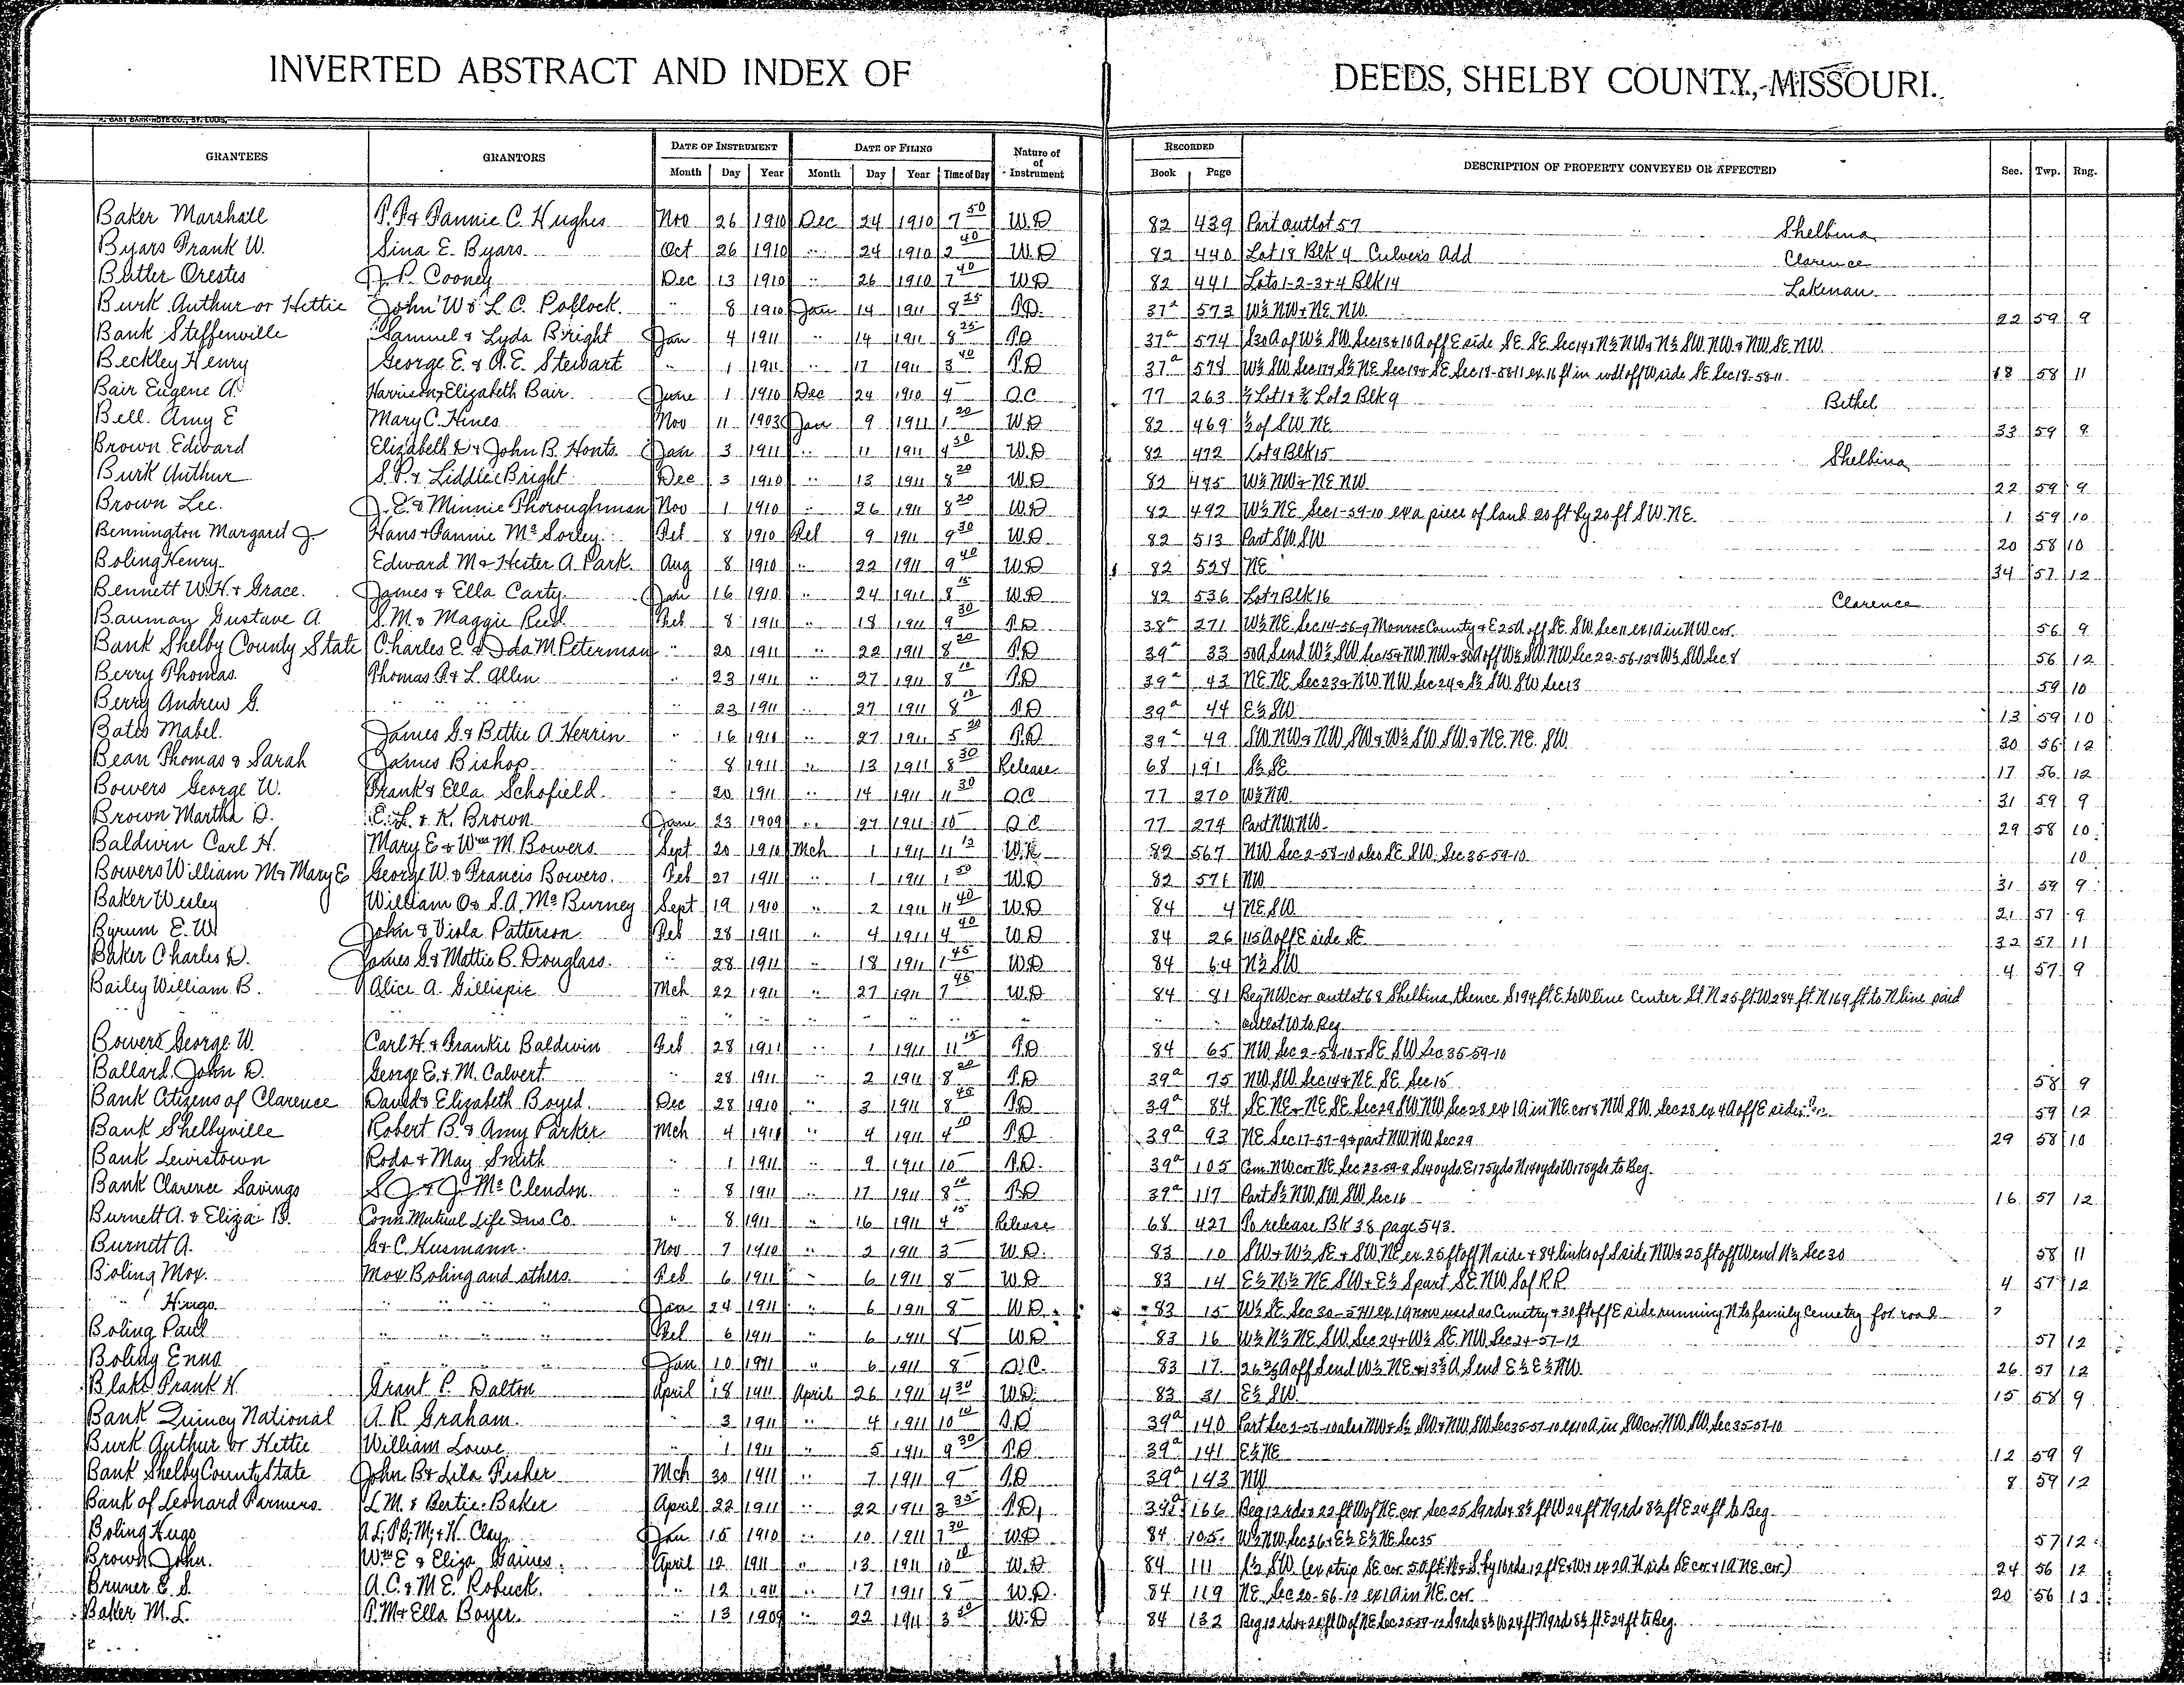 INVERTED ABSTRACT AND INDEX OF DEEDS, SHELBY COUNTY, MISSOURI.
GRANTEES GRANTORS DATE OF INSTRUMENT DATE OF FILING Nature of of Instrument RECORDED DESCRIPTION OF PROPERTY CONVEYED OR AFFECTED Sec. Twp. Rng.
Month Day Year Month Day Year Time of Day Book Page
Baker Marshall P.P. & Fannie C. Hughes Nov 26 1910 Dec 24 1910 7 50 W.D 82 439 Part outlot 57 Shelbina
Byars Frank W. Sina E. Byars Oct 26 1910 " 24 1910 2 40 W.D 82 440 Lot 18 Blk 4 Culvers Add Clarence
Butler Orestes J.P. Cooney Dec 13 1910 " 26 1910 7 40 W.D 82 441 Lots 1-2-3+4 Blk 14 Lakenan
Burk Arthur or Hettie John W & L.C. Pollock " 8 1910 Jan 14 1911 8 25 T.D. 37a 573 W½ NW + NE NW 22 59 9
Bank Steffenville Samuel & Lyda Bright Jan 4 1911 " 14 1911 8 25 T.D 37a 574 S30A of W½ SW Sec 13 & 10A off E side SE SE Sec 14 & N½ NW & N½ SW NW & NW SE NW
Beckley Henry George E. & A.E. Stewart " 1 1911 " 17 1911 3 40 T.D 37a 578 W½ SW Sec 17 & S½ NE Sec 18 & SE Sec 18-58-11 ex 16 ft in wdt off W side SE Sec 18-58-11 18 58 11
Bair Eugene A. Harrison & Elizabeth Bair June 1 1910 Dec 24 1910 4 Q.C 77 263 Lot 1 Lot 2 Blk 9 Bethel
Bell Amy E Mary C. Hines Nov 11 1903 Jan 9 1911 1 20 W.D 82 469 ½ of SW NE 33 59 9
Brown Edward Elizabeth D & John B. Honts Jan 3 1911 " 11 1911 4 30 W.D 82 472 Lot 9 Blk 15 Shelbina
Burk Arthur S.P. & Liddie Bright Dec 3 1910 " 13 1911 8 20 W.D 82 475 W½ NW + NE NW 22 59 9
Brown Lee J.E. & Minnie Thoroughman Nov 1 1910 " 26 1911 8 20 W.D 82 492 W½ NE Sec 1-59-10 ex a piece of land 20 ft by 20 ft SW NE 1 59 10
Bennington Margaret J Hans & Fannie McSorley Feb 8 1910 Feb 9 1911 9 30 W.D 82 513 Part SW SW 20 58 10
Boling Henry Edward M & Hester A. Park Aug 8 1910 " 22 1911 9 40 W.D 82 528 NE 34 57 12
Bennett W.H. & Grace James & Ella Carty Jan 16 1910 " 24 1911 8 15 W.D 82 536 Lot 7 Blk 16 Clarence
Bauman Gustave A S.M. & Maggie Reed Feb 8 1911 " 18 1911 9 30 T.D 38a 271 W½ NE Sec 14-56-9 Monroe County & E 25A off SE SW Sec 11 ex 1A in NW cor. 56 9
Bank Shelby County State Charles E. & Ida M Peterman " 20 1911 " 22 1911 8 20 T.D 39a 33 50A S end W½ SW Sec 15 & NW NW & 30A off W½ SW NW Sec 22-56-12 & W½ SW Sec 8 56 12
Berry Thomas Thomas P. & L. Allen " 23 1911 " 27 1911 8 10 T.D 39a 43 NE NE Sec 23 & NW NW Sec 24 & S½ SW SW Sec 13 59 10
Berry Andrew G. " " " 23 1911 " 27 1911 8 10 T.D 39a 44 E½ SW 13 59 10
Bates Mabel James G & Bettie A. Herrin " 16 1911 " 27 1911 5 20 T.D 39a 49 SW NW & NW SW & W½ SW SW & NE NE SW 30 56 12
Bean Thomas & Sarah James Bishop " 8 1911 " 13 1911 8 30 Release 68 191 S½ SE 17 56 12
Bowers George W. Frank & Ella Schofield " 20 1911 " 14 1911 11 30 Q.C 77 270 W½ NW 31 59 9
Brown Martha D. E.L. & K. Brown June 23 1909 " 27 1911 10 Q.C 77 274 Part NW NW 29 58 10
Baldwin Carl H. Mary E & Wm M. Bowers Sept 20 1910 Mch 1 1911 11 15 W.D 82 567 NW Sec 2-58-10 also SE SW Sec 35-59-10 10
Bowers William M & Mary E George W. & Francis Bowers Feb 27 1911 " 1 1911 1 50 W.D 82 571 NW 31 59 9
Baker Wesley William O & S.A. McBurney Sept 19 1910 " 2 1911 11 40 W.D 84 4 NE SW 21 57 9
Byrum E.W John & Viola Patterson Feb 28 1911 " 4 1911 4 40 W.D 84 26 115A off E side SE 32 57 11
Baker Charles D. James G & Mattie B. Douglass " 28 1911 " 18 1911 1 45 W.D 84 64 N½ SW 4 57 9
Bailey William B. Alice A. Gillispie Mch 22 1911 " 27 1911 7 45 W.D 84 81 Beg NW cor outlot 68 Shelbina, thence S 194 ft E to W line Center St N 25 ft W 284 ft N 169 ft to N line said
" " " " " " " " " " " outlot W to Beg
Bowers George W. Carl H. & Frankie Baldwin Feb 28 1911 " 1 1911 11 15 T.D 84 65 NW Sec 2-58-10 & SE SW Sec 35-59-10
Ballard John D. George E. & M. Calvert " 28 1911 " 2 1911 8 20 T.D 39a 75 NW SW Sec 14 & NE SE Sec 15 58 9
Bank Citizens of Clarence David & Elizabeth Boyed Dec 28 1910 " 3 1911 8 45 T.D 39a 84 SE NE & NE SE Sec 29 SW NW Sec 28 ex 1A in NE cor & NW SW Sec 28 ex 4A off E side 59 12
Bank Shelbyville Robert B. & Amy Parker Mch 4 1911 " 4 1911 4 10 T.D 39a 93 NE Sec 17-57-9 & part NW NW Sec 29 29 58 10
Bank Lewistown Roda & May Smith " 1 1911 " 9 1911 10 T.D. 39a 105 Com NW cor NE Sec 23-59-9 S 140 yds E 175 yds N 140 yds W 175 yds to Beg.
Bank Clarence Savings S J & J McClendon " 8 1911 " 17 1911 8 10 T.D 39a 117 Part S½ NW SW SW Sec 16 16 57 12
Burnett A. & Eliza B. Conn Mutual Life Ins Co. " 8 1911 " 16 1911 4 15 Release 68 427 To release BK 38 page 543
Burnett A. G & C. Husmann Nov 7 1910 " 2 1911 3 W.D. 83 10 SW & W½ SE & SW NE ex 25 ft off N side & 84 links of S side NW & 25 ft off W end N½ Sec 30 58 11
Boling Mox. Mox Boling and others Feb 6 1911 " 6 1911 8 W.D 83 14 E½ N½ NE SW & E½ S part SE NW S of R.R. 4 57 12
" Hugo " " " Jan 24 1911 " 6 1911 8 W.D. 83 15 W½ SE Sec 30-57-11 ex 1A now used as Cemetry & 30 ft off E side running N to family Cemetry for road
Boling Paul " " " Feb 6 1911 " 6 1911 8 W.D 83 16 W½ N½ NE SW Sec 24 & W½ SE NW Sec 24-57-12 57 12
Boling Enno " " " Jan 10 1911 " 6 1911 8 Q.C. 83 17 26⅔A off S end W½ NE & 13⅓A S end E½ E½ NW 26 57 12
Blake Frank H. Grant P. Dalton April 18 1911 April 26 1911 4 30 W.D. 83 31 E½ SW 15 58 9
Bank Quincy National A R Graham " 3 1911 " 4 1911 10 10 T.D 39a 140 Part Sec 2-56-10 also NW & S½ SW & NW SW Sec 35-57-10 ex 10A in SW cor NW SW Sec 35-57-10
Burk Arthur or Hettie William Lowe " 1 1911 " 5 1911 9 30 T.D 39a 141 E½ NE 12 59 9
Bank Shelby County State John B & Lila Fisher Mch 30 1911 " 7 1911 9 T.D 39a 143 NW 8 59 12
Bank of Leonard Farmers L.M. & Bertie Baker April 22 1911 " 22 1911 3 35 T.D. 39a 166 Beg 12 rds & 22 ft W of NE cor Sec 25 S 9 rds & 8½ ft W 24 ft N 9 rds 8½ ft E 24 ft to Beg
Boling Hugo A.L; P.B; M; & H. Clay Jan 15 1910 " 10 1911 7 30 W.D 84 105 W½ NW Sec 36 & E½ E½ NE Sec 35 57 12
Brown John. Wm E & Eliza Gaines April 12 1911 " 13 1911 10 10 W.D 84 111 SW (ex strip SE cor 50 ft N & S by 16 rds 12 ft E & W & ex 2A N side SE cor & 1A NE cor.) 24 56 12
Bruner E.S. A.C. & M.E. Robuck. " 12 1911 " 17 1911 8 W.D. 84 119 NE Sec 20-56-12 ex 1A in NE cor. 20 56 12
Baker M.L. P.M & Ella Boyer. " 13 1909 " 22 1911 3 30 W.D 84 132 Beg 12 rds & 22 ft W of NE Sec 25-59-12 S 9 rds 8½ W 24 ft N 9 rds 8½ ft E 24 ft to Beg.